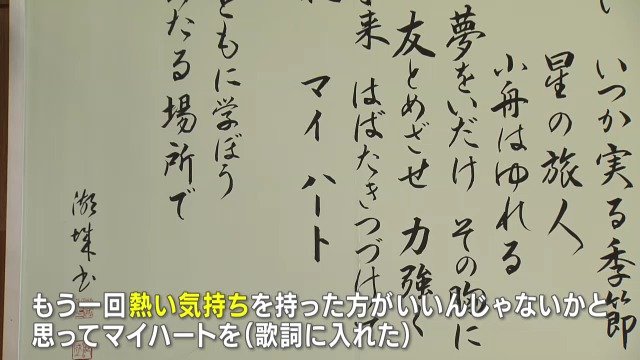 い
いつか実る季節
星の旅人
小舟はゆれる
夢をいだけ その胸に
友とめざせ 力強く
来 はばたきつづけ
マイ ハート
ともに学ぼう
たる場所で
湖城書
もう一回熱い気持ちを持った方がいいんじゃないかと
思ってマイハートを(歌詞に入れた)